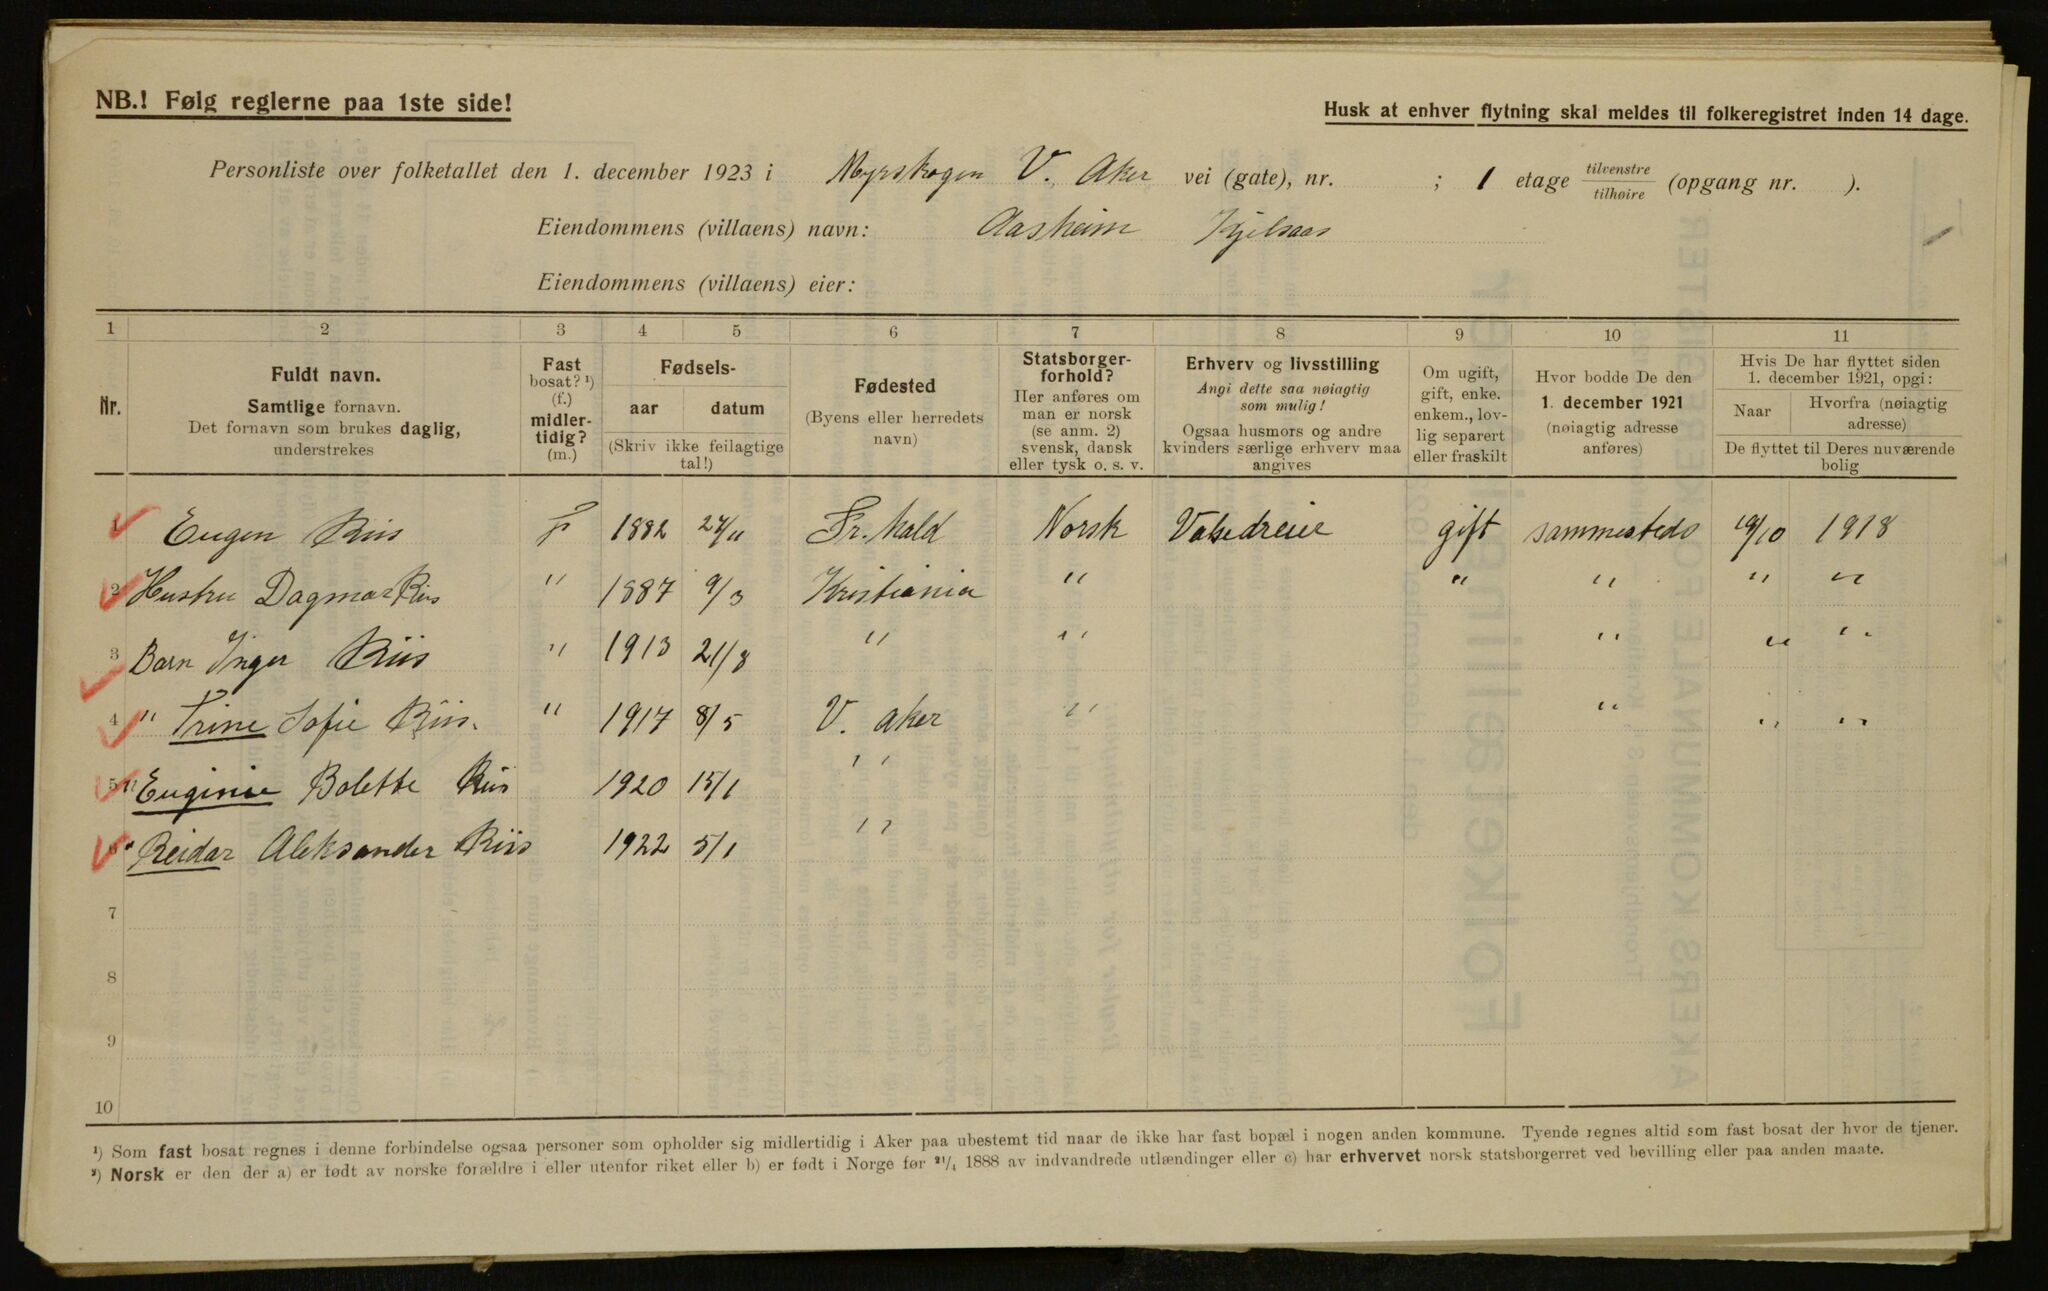 NB.! Følg reglerne paa 1ste side!
Husk at enhver flytning skal meldes til folkeregistret inden 14 dage.
Personliste over folketallet den 1. december 1923 i Myrskogen V. Aker vei (gate), nr. ; 1 etage tilvenstre tilhøire (opgang nr. ).
Eiendommens (villaens) navn: Aasheim Kjelsaas
Eiendommens (villaens) eier:
1 2 3 4 5 6 7 8 9 10 11
Nr.
Fuldt navn.
Samtlige fornavn.
Det fornavn som brukes daglig,
understrekes
Fast
bosat? ¹)
(f.)
midler-
tidig?
(m.)
Fødsels-
aar datum
(Skriv ikke feilagtige
tal!)
Fødested
(Byens eller herredets
navn)
Statsborger-
forhold?
Her anføres om
man er norsk
(se anm. 2)
svensk, dansk
eller tysk o. s. v.
Erhverv og livsstilling
Angi dette saa nøiagtig
som mulig!
Ogsaa husmors og andre
kvinders særlige erhverv maa
angives
Om ugift,
gift, enke.
enkem., lov-
lig separert
eller fraskilt
Hvor bodde De den
1. december 1921
(nøiagtig adresse
anføres)
Hvis De har flyttet siden
1. december 1921, opgi:
Naar Hvorfra (nøiagtig
adresse)
De flyttet til Deres nuværende
bolig
1 Eugen Riis f 1882 27/11 Fr. hald Norsk Valsedreier gift sammesteds 19/10 1918
2 Hustru Dagmar Riis " 1887 9/3 Kristiania " " " " "
3 Barn Inger Riis " 1913 21/8 " " " " "
4 " Trine Sofie Riis. " 1917 8/5 V. Aker " " " "
5 " Euginie Bolette Riis 1920 15/1 "
6 " Reidar Aleksander Riis 1922 5/1 "
7
8
9
10
¹) Som fast bosat regnes i denne forbindelse ogsaa personer som opholder sig midlertidig i Aker paa ubestemt tid naar de ikke har fast bopæl i nogen anden kommune. Tyende regnes altid som fast bosat der hvor de tjener.
²) Norsk er den der a) er født av norske forældre i eller utenfor riket eller b) er født i Norge før ²¹/₄ 1888 av indvandrede utlændinger eller c) har erhvervet norsk statsborgerret ved bevilling eller paa anden maate.